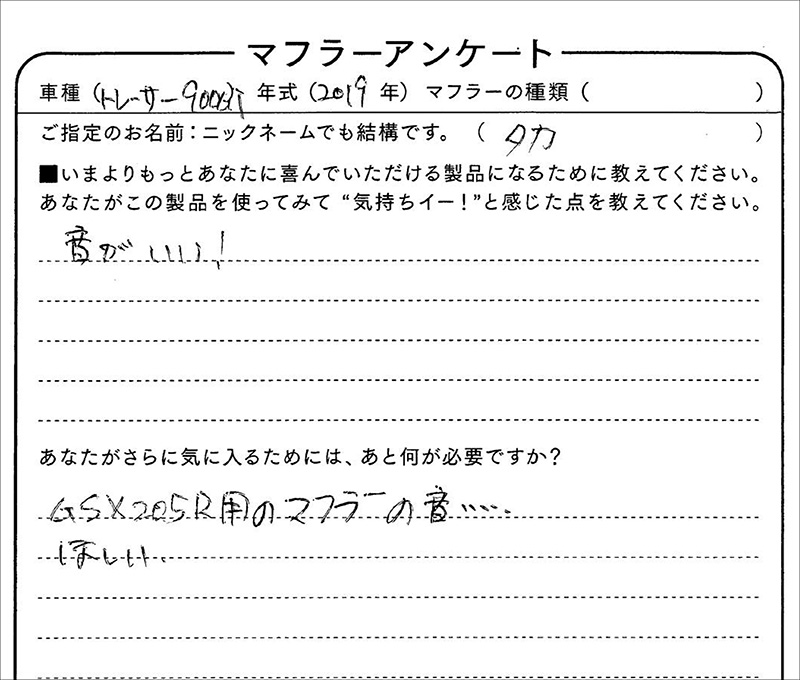 マフラーアンケート
車種（トレーサー900GT 年式（2019 年） マフラーの種類（　　　）
ご指定のお名前：ニックネームでも結構です。（ タカ ）
■いまよりもっとあなたに喜んでいただける製品になるために教えてください。
あなたがこの製品を使ってみて“気持ちイー！”と感じた点を教えてください。
音がいい！
あなたがさらに気に入るためには、あと何が必要ですか？
GSX205R用のマフラーの音……
ほしい.